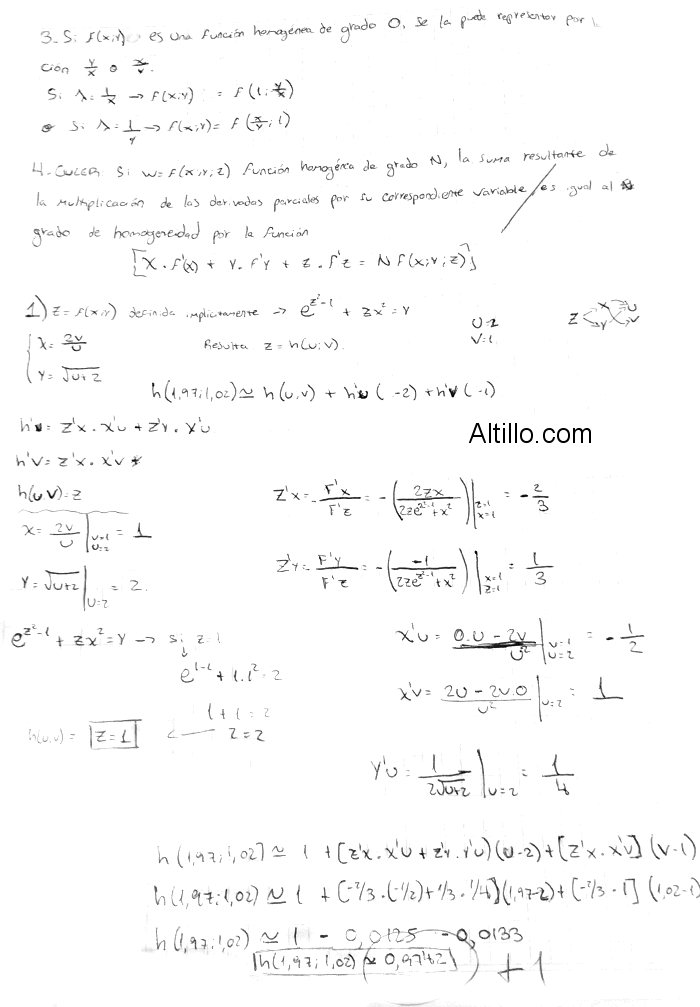 3-Si f(x;y) es una función homogénea de grado 0, se la puede representar por
ción y/x o x/y.
Si λ=1/x → f(x;y) = f(1; y/x)
Si λ=1/y → f(x;y)= f(x/y; 1)
4-EULER Si w=f(x;y;z) función homogénea de grado N, la suma resultante de
la multiplicación de las derivadas parciales por su correspondiente variable, es igual al
grado de homogeneidad por la función
[X.f'(x) + Y.f'y + Z.f'z = N f(x;y;z)]
1) Z=f(x;y) definida implicitamente → e^(z²-1) + zx² = y
U=2
V=1
Z x y U V
{ X= 2v/u Resulta z=h(u;v).
Y=√(u+2)
h(1,97;1,02) ≃ h(u,v) + h'u ( -2) + h'v (-1)
h'u= z'x . x'u + z'y . x'u
h'v= z'x . x'v
h(u,v)=z
z'x=- F'x/F'z = -(2zx/(2ze^(z²-1)+x²))|z=1 x=1 = -2/3
x= 2v/u |v=1 u=2 = 1
z'y= F'y/F'z = -(-1/(2ze^(z²-1)+x²))|x=1 z=1 = 1/3
y=√(u+2) |u=2 = 2.
e^(z²-1) + zx² = y → si z=1
x'u = (0.u - 2v)/u² |v=1 u=2 = -1/2
e^(1-1) + 1.1² = 2
x'v= (2u - 2v.0)/u² |u=2 = 1
1+1=2
h(u,v) = z=1
2=2
y'u= 1/(2√(u+2)) |u=2 = 1/4
h(1,97;1,02) ≃ 1 + [z'x . x'u + z'y . y'u] (u-2) + [z'x . x'v] (v-1)
h(1,97;1,02) ≃ 1 + [-2/3.(-1/2)+1/3.1/4](1,97-2)+[-2/3.1] (1,02-1)
h(1,97;1,02) ≃ 1 - 0,0125 - 0,0133
h(1,97;1,02) ≃ 0,9742 +1
Altillo.com